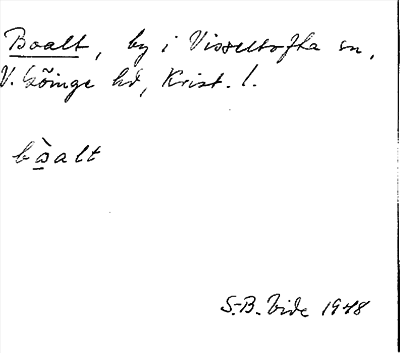 Boalt, by i Visseltofta sn,
V. Göinge hd, Krist. l.
bò̲alt
S.-B. Vide 1948